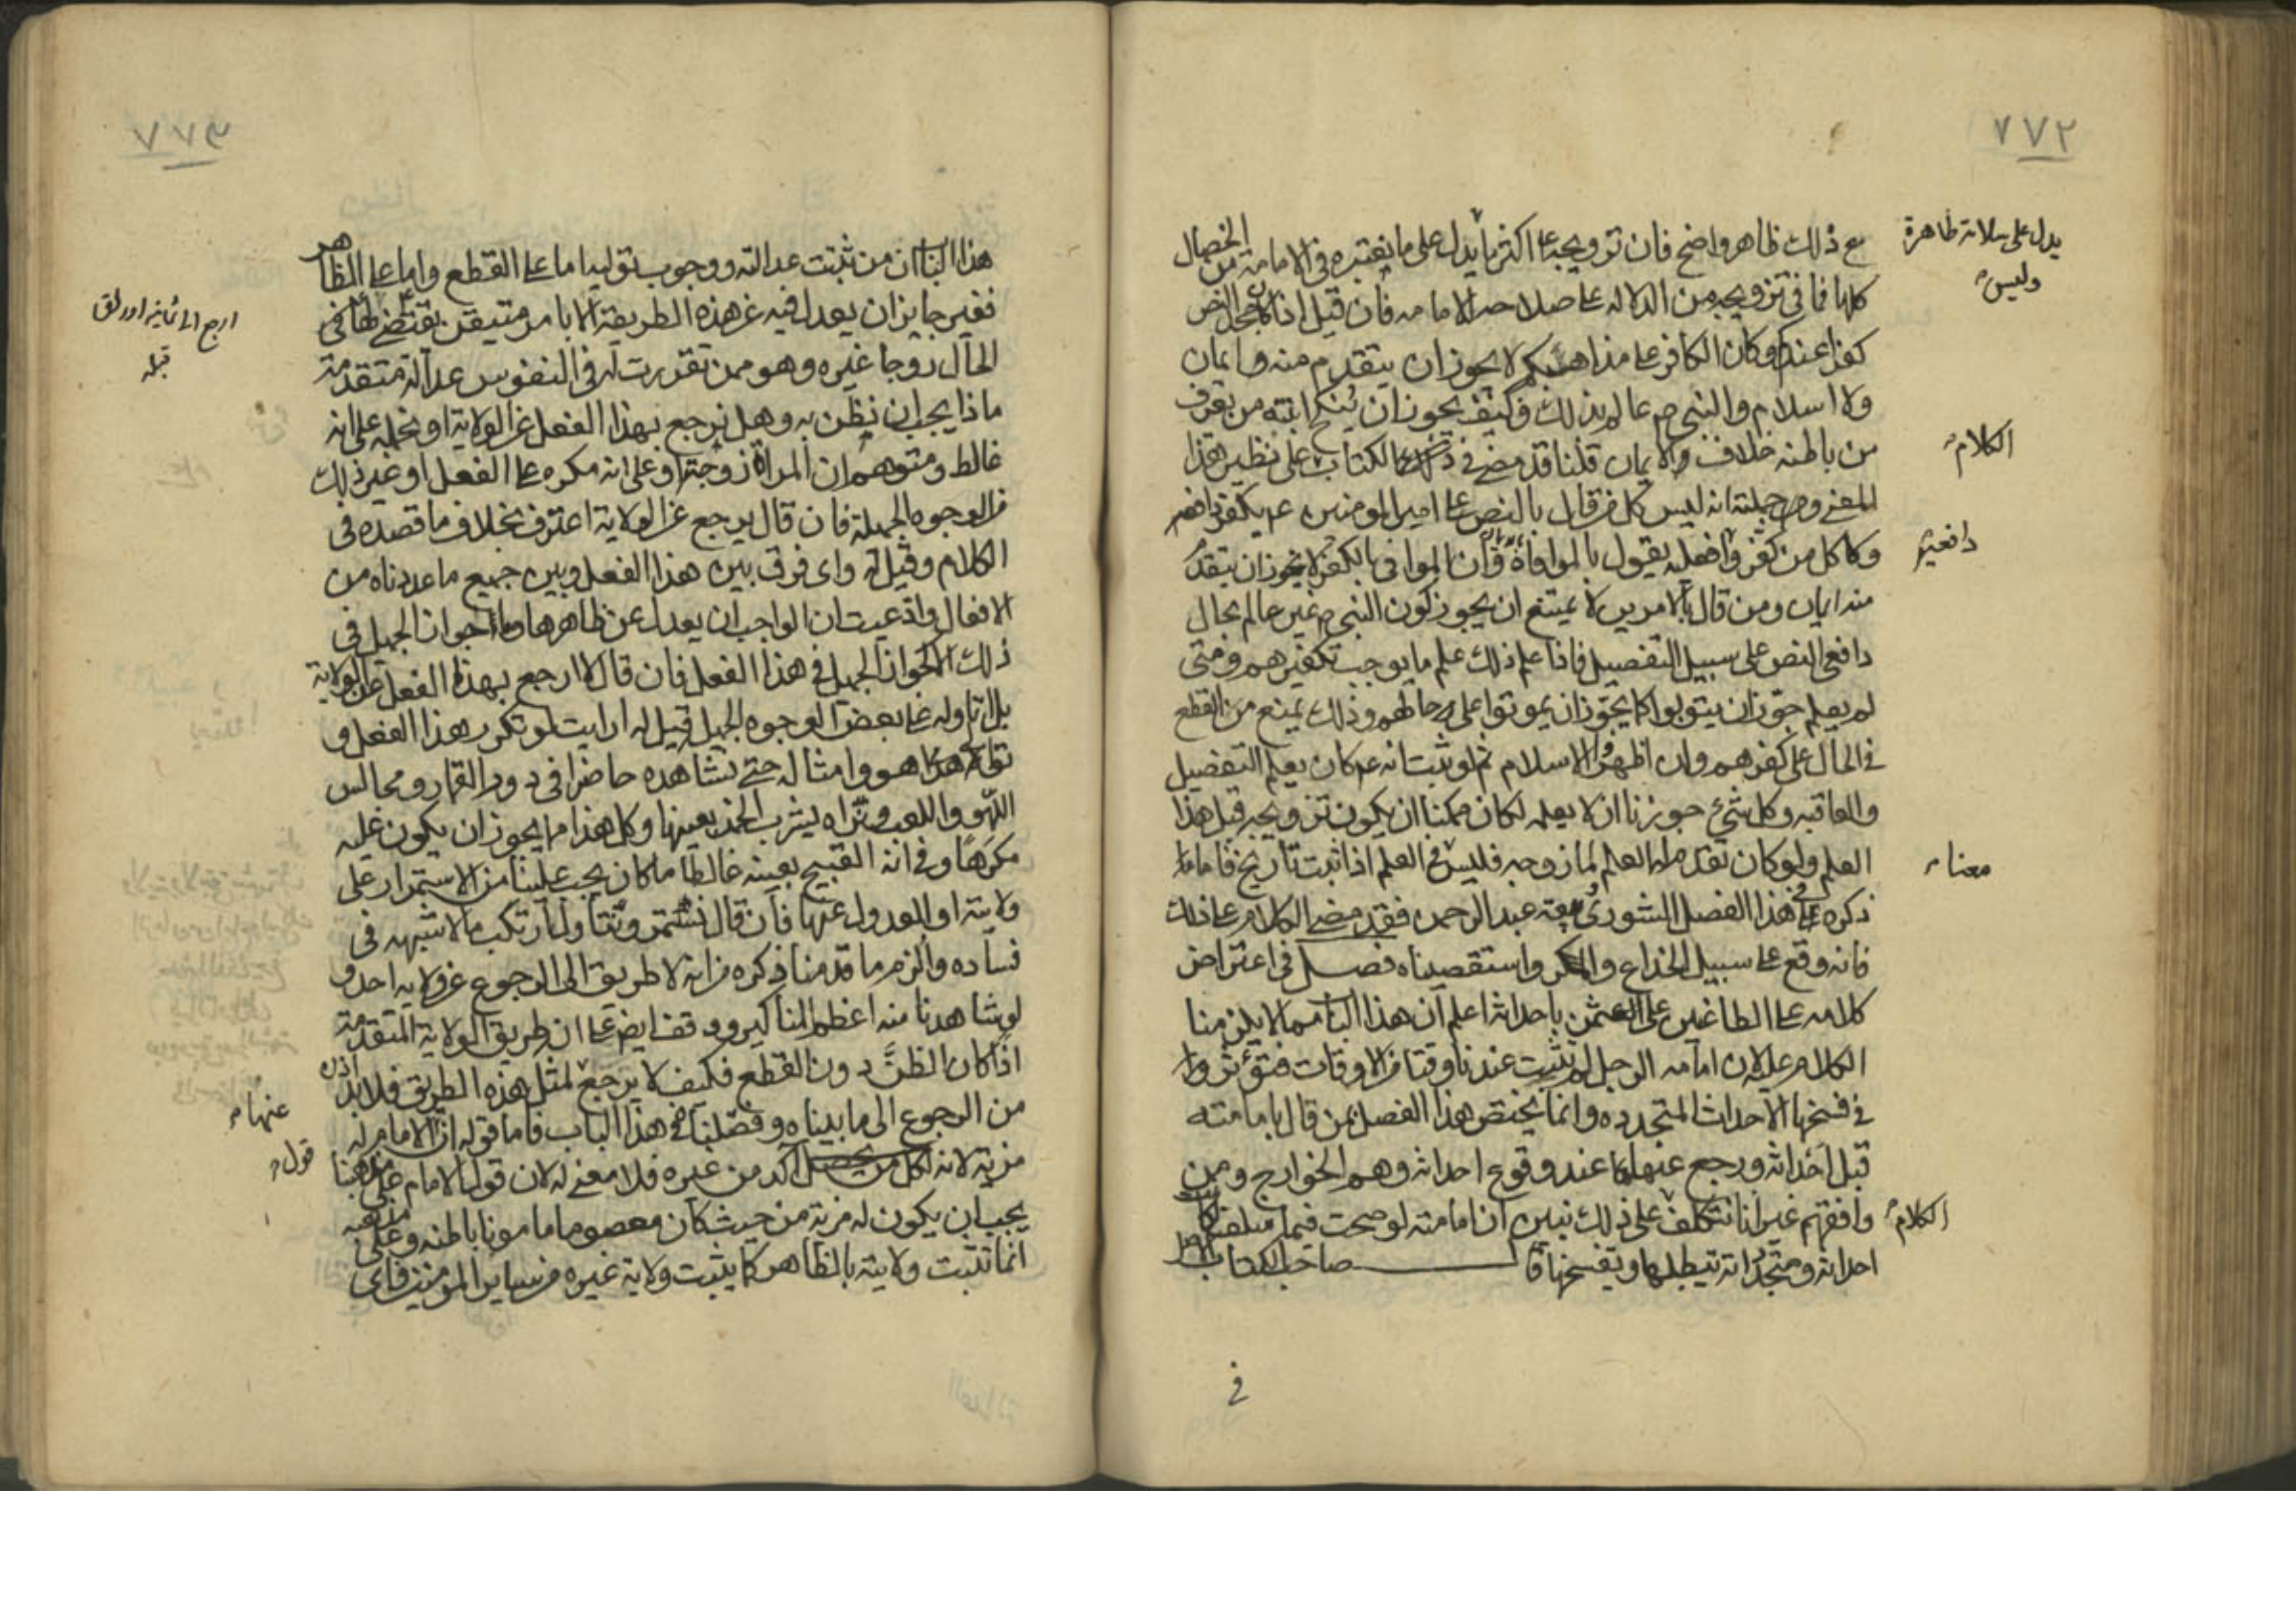 ٧٧٢
مع ذلك ظاهر واضح فان تزويجه عا اكثر ما يدل على ما نعتبره فى الامامة من الخصال
يدل على سلامة ظاهرة وليس
كلها فما فى تزويجه من الدلالة عا صلاحه للامامه فان قيل اذا كان جحد النص
كفرا عندكم وكان الكافر عا مذاهبكم لا يجوز ان يتقدم منه ايمان
ولا اسلام والنبى ص عالم بذلك فكيف يجوز ان ينكح ابنته من يعرف
من باطنه خلاف الايمان قلنا قد مضى فى هذا الكتاب على نظير هذا
الكلام
المعنى وجملته انه ليس كل من قال بالنص عا امير المومنين ع يكفر دافعه
دافعيه
ولا كل من كفر دافعيه يقول بالموافاة وان الموافى بالكفر لا يجوز ان يتقدم
منه ايمان ومن قال بالامرين لا يمتنع ان يجوز كون النبى ص غير عالم بحال
دافعى النص على سبيل التفصيل فاذا علم ذلك علم ما يوجب تكفيرهم ومتى
لم يعلم جوز ان يتوبوا كما يجوز ان يموتوا على حالهم وذلك يمنع من القطع
فى الحال على كفرهم وان اظهروا الاسلام ثم لو ثبت انه ع كان يعلم التفصيل
والعاقبه وكل شئ جوزنا ان لا يعلمه لكان ممكنا ان يكون تزويجه قبل هذا
العلم ولو كان تقدم له العلم لما زوجه فليس فى العلم اذا ثبت تاريخ فاما ما
معناه
ذكره فى هذا الفصل الشورى بيعه عبد الرحمن فقد مضى الكلام عا ذلك
فانه وقع عا سبيل الخداع والمكر واستقصيناه فصل فى اعتراض
كلامه عا الطاغين على عثمن باحداثه اعلم ان هذا الباب مما لا يلزمنا
الكلام عليه لان امامه الرجل لم تثبت عندنا وقتا من الاوقات فتؤثر
فى فسخها الاحداث المتجدده وانما يختص هذا الفصل بمن قال بامامته
قبل احداثه ورجع عنها عند وقوع احداثه وهم الخوارج ومن
وافقهم غير انا نتكلف على ذلك نبين ان امامته لو صحت فيما سلف لكانت
الكلام
احداثه ومتجدداته تبطلها وتفسخها قال صاحب الكتاب
فى
٧٧٣
هذا الباب ان من ثبتت عدالته ووجوب توليه اما عا القطع واما عا الظاهر
فغير جايز ان يعدل فيه عن هذه الطريقة الا بامر متيقن يقتضى
ارجع الى ثمانية اوراق قبله
الحال زوجا غيره وهو ممن تقررت له فى النفوس عدالة متقدمة
ماذا يجب ان نظن به وهل نرجع بهذا الفعل عن الولاية او نحمله على انه
غالط ومتوهم ان المراة زوجته او على انه مكره عا الفعل او غير ذلك
من الوجوه الجميلة فان قال نرجع عن الولاية اعترف بخلاف ما قصده فى
الكلام وقيل له واى فرق بين هذا الفعل وبين جميع ما عددناه من
الافعال وادعيت ان الواجب ان يعدل عن ظاهرها وما جواز الجميل فى
ذلك الا كجواز الجميل فى هذا الفعل فان قال لا ارجع بهذا الفعل عن الولاية
بل اتاوله عا بعض الوجوه الجميل قيل له ارايت لو تكرر هذا الفعل و
توالى هو وامثاله حتى نشاهده حاضرا فى دور القمار ومجالس
اللهو واللعب ونراه يشرب الخمر بعينها وكل هذا مما يجوز ان يكون عليه
مكرها وفى انه القبيح بعينه غالطا ما كان يجب علينا من الاستمرار على
ولايته او العدول عنها فان قال نستمر ونتاول ارتكب ما لا شبهه فى
فساده والزم ما قدمنا ذكره من انه لا طريق الى الرجوع عن ولايه احد و
لو شاهدنا منه اعظم المناكير ووقف ايضا عا ان طريق الولاية المتقدمة
اذا كان الظن دون القطع فكيف لا يرجع لمثل هذه الطريق فلا بد اذن
من الرجوع الى ما بيناه وفصلناه فى هذا الباب فاما قوله ان الامام له
عنها
مزية لانه اكد من غيره فلا معنى له لان قول الامام على مذهبنا
قول
يجب ان يكون له مزية من حيث كان معصوما مامونا باطنه وعلى مذهبه
انما تثبت ولايته بالظاهر كما يثبت ولاية غيره من ساير المومنين فاى